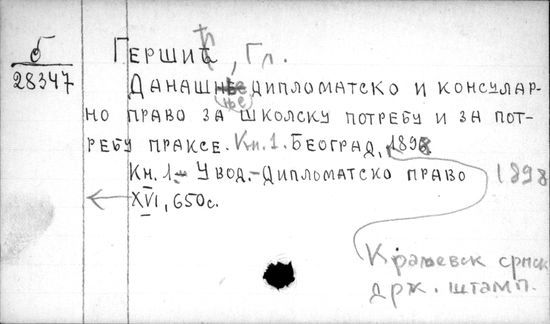 б
28347
Гершић, Гл.
Данашње дипломатско и консулар-
но право за школску потребу и за пот-
ребу праксе. Кн. 1. Београд, 1898.
Кн. 1.- Увод.- Дипломатско право
1898
XVI, 650с.
Краљевск српск
држ. штамп.